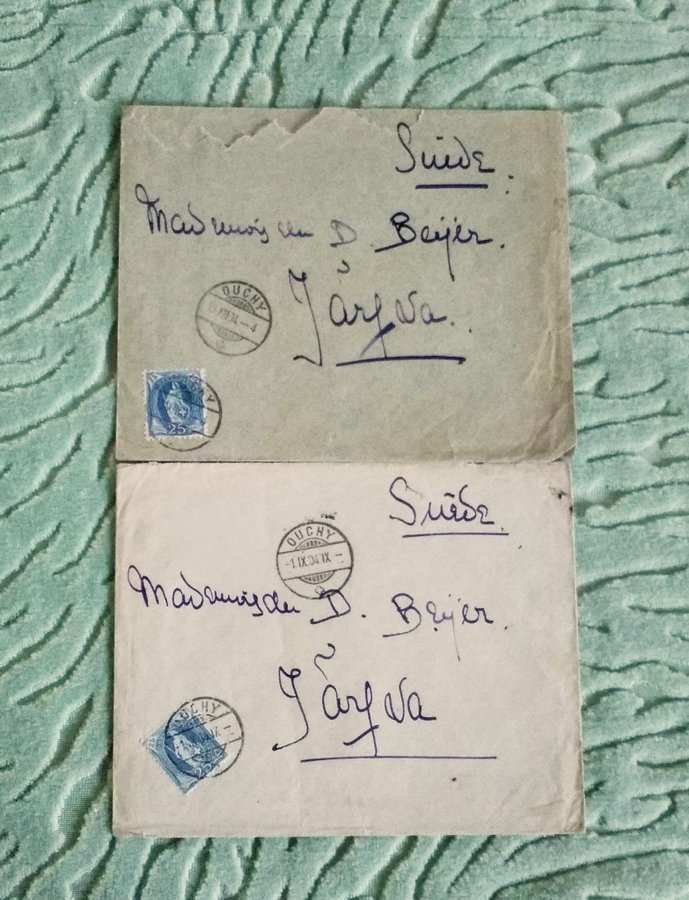 Suède.
Mademoiselle D. Beijer.
Järfva.
OUCHY
25
Suède.
OUCHY
-1.IX.04.IX-
Mademoiselle D. Beijer.
Järfva
OUCHY
25